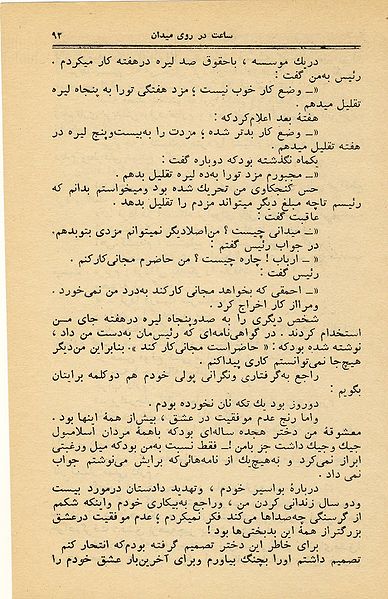 ساعت در روی میدان
۹۳
دریك موسسه ، باحقوق صد لیره درهفته کار میکردم .
رئیس به‌من گفت :
«ـ وضع کار خوب نیست ؛ مزد هفتگی تورا به پنجاه لیره
تقلیل میدهم .
هفتهٔ بعد اعلام‌کردکه :
«ـ وضع کار بدتر شده ؛ مزدت را به‌بیست‌وپنج لیره در
هفته تقلیل میدهم .
یکماه نگذشته بودکه دوباره گفت :
«ـ مجبورم مزد تورا به‌ده لیره تقلیل بدهم .
حس کنجکاوی من تحریك شده بود ومیخواستم بدانم که
رئیسم تاچه مبلغ دیگر میتواند مزدم را تقلیل بدهد .
عاقبت گفت :
«ـ میدانی چیست ؟ من‌اصلادیگر نمیتوانم مزدی بتوبدهم.
در جواب رئیس گفتم :
«ـ ارباب ! چاره چیست ؟ من حاضرم مجانی‌کارکنم .
رئیس گفت :
«ـ احمقی که بخواهد مجانی کارکند به‌درد من نمی‌خورد .
ومرااز کار اخراج کرد .
شخص دیگری را به صدوپنجاه لیره درهفته جای مـن
استخدام کردند . در گواهی‌نامه‌ای که رئیس‌مان به‌دست من داد ،
نوشته شده بودکه : « حاضراست مجانی‌کار کند ». بنابراین من‌دیگر
هیچ‌جا نمی‌توانستم کاری پیداکنم .
راجع به‌گرفتاری ونگرانی پولی خودم هم دوکلمه برایتان
بگویم :
دوروز بود یك تکه نان نخورده بودم .
واما رنج عدم موفقیت در عشق ، بیش‌از همهٔ اینها بود .
معشوقهٔ من دختر هجده ساله‌ای بودکه باهمهٔ مردان اسلامبول
جیك وجیك داشت جز بامن !ـ فقط نسبت به‌من بودکه میل ورغبتی
ابراز نمی‌کرد و به‌هیچ‌یك از نامه‌هائی‌که برایش می‌نوشتم جواب
نمی داد .
دربارهٔ بواسیر خودم ، وتهدید دادستان درمورد بیست
ودو سال زندانی کردن من ، وراجع به‌بیکاری خودم واینکه شکمم
از گرسنگی چه‌صداها می‌کند فکر نمیکردم ؛ عدم موفقیت درعشق
بزرگتراز همهٔ این بدبختی‌ها بود !
برای خاطر این دختر تصمیم گرفته بودم‌که انتحار کنم
تصمیم داشتم اورا بچنگ بیاورم وبرای آخرین‌بار عشق خودم را